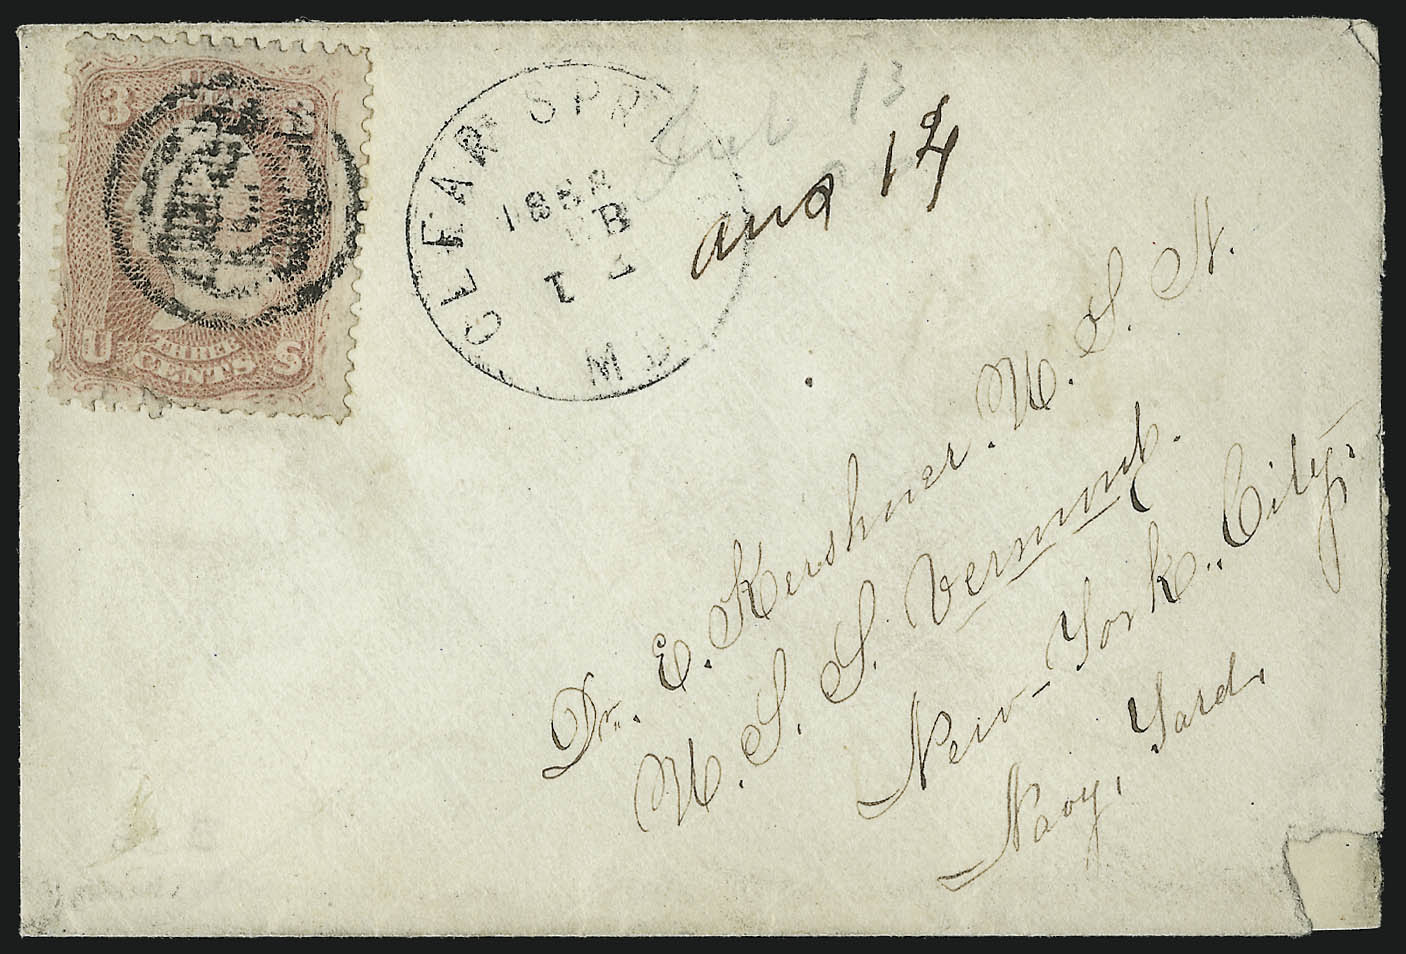 3
U S
THREE
CENTS
CLEAR SPRI
1868
MD.
Feb 13
and 14
Dr. E. Kershner. U. S. N.
U. S. S. Vermont.
New-York. City.
Navy, Yard,